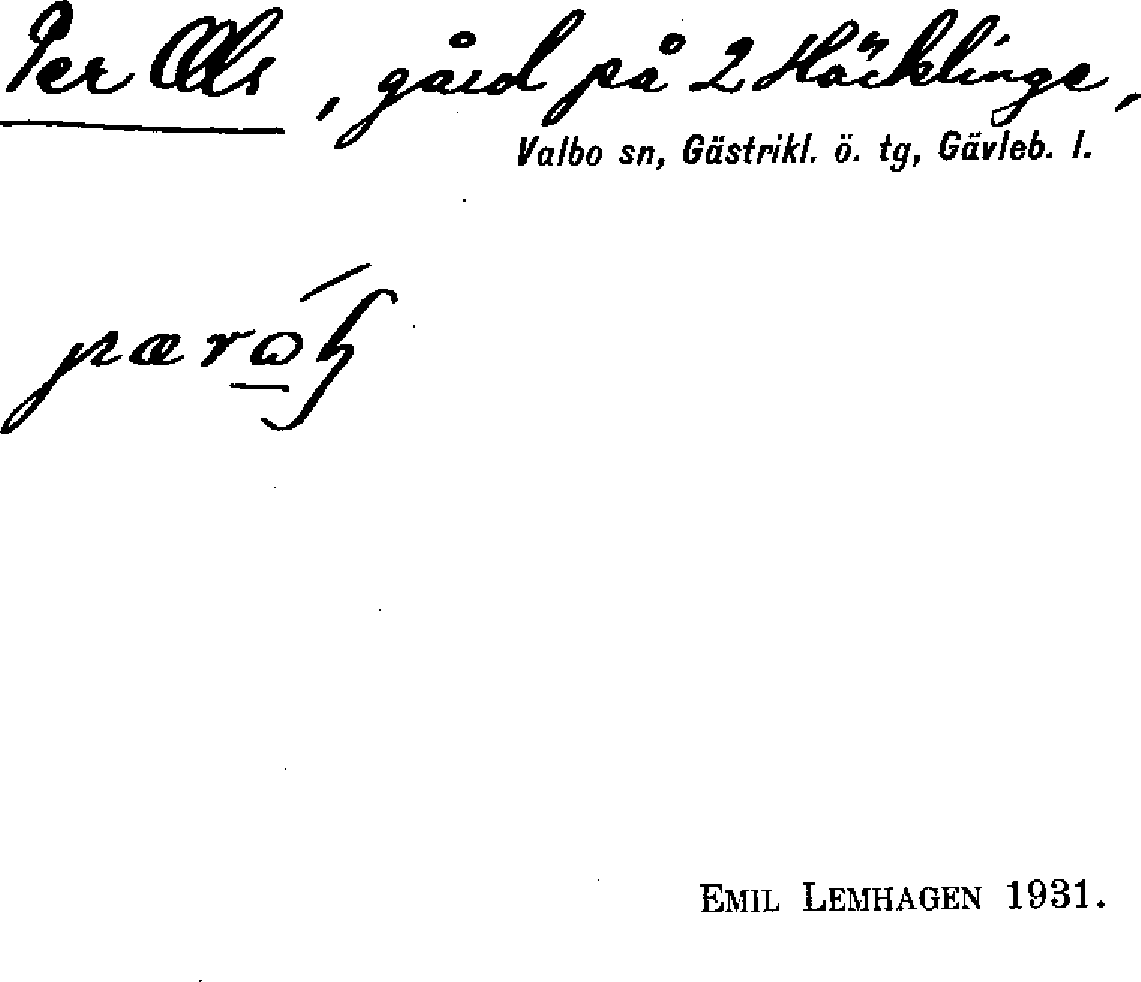 Per Ols, gård på 2 Häcklinge,
Valbo sn, Gästrikl. ö. tg, Gävleb. l.
EMIL LEMHAGEN 1931.